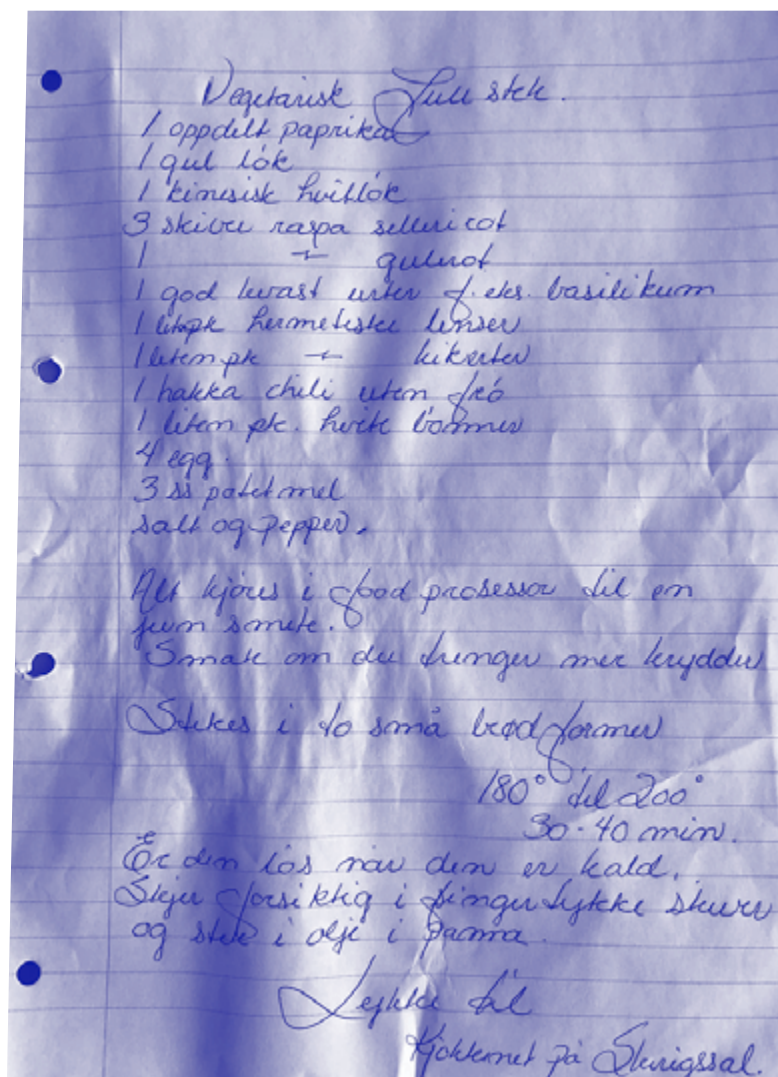 Vegetarisk Jule stek.
1 oppdelt paprika
1 gul lök
1 kinesisk hvitlök
3 skiver raspa sellerirot
1 –"– gulerot
1 god kvast urter f. eks. basilikum
1 liten pk hermetiske linser
1 liten pk –"– kikerter
1 hakka chili uten frö
1 liten pk. hvite bönner
4 egg.
3 ss potetmel
salt og pepper.
Alt kjöres i food prosessor til en
jevn smete.
Smak om du trenger mer krydder
Stekes i to små brødformer
180° til 200°
30-40 min.
Er den lös når den er kald,
Skjer forsiktig i fingertykke skiver
og stek i olje i panna.
Lykke til
Kjökkenet på